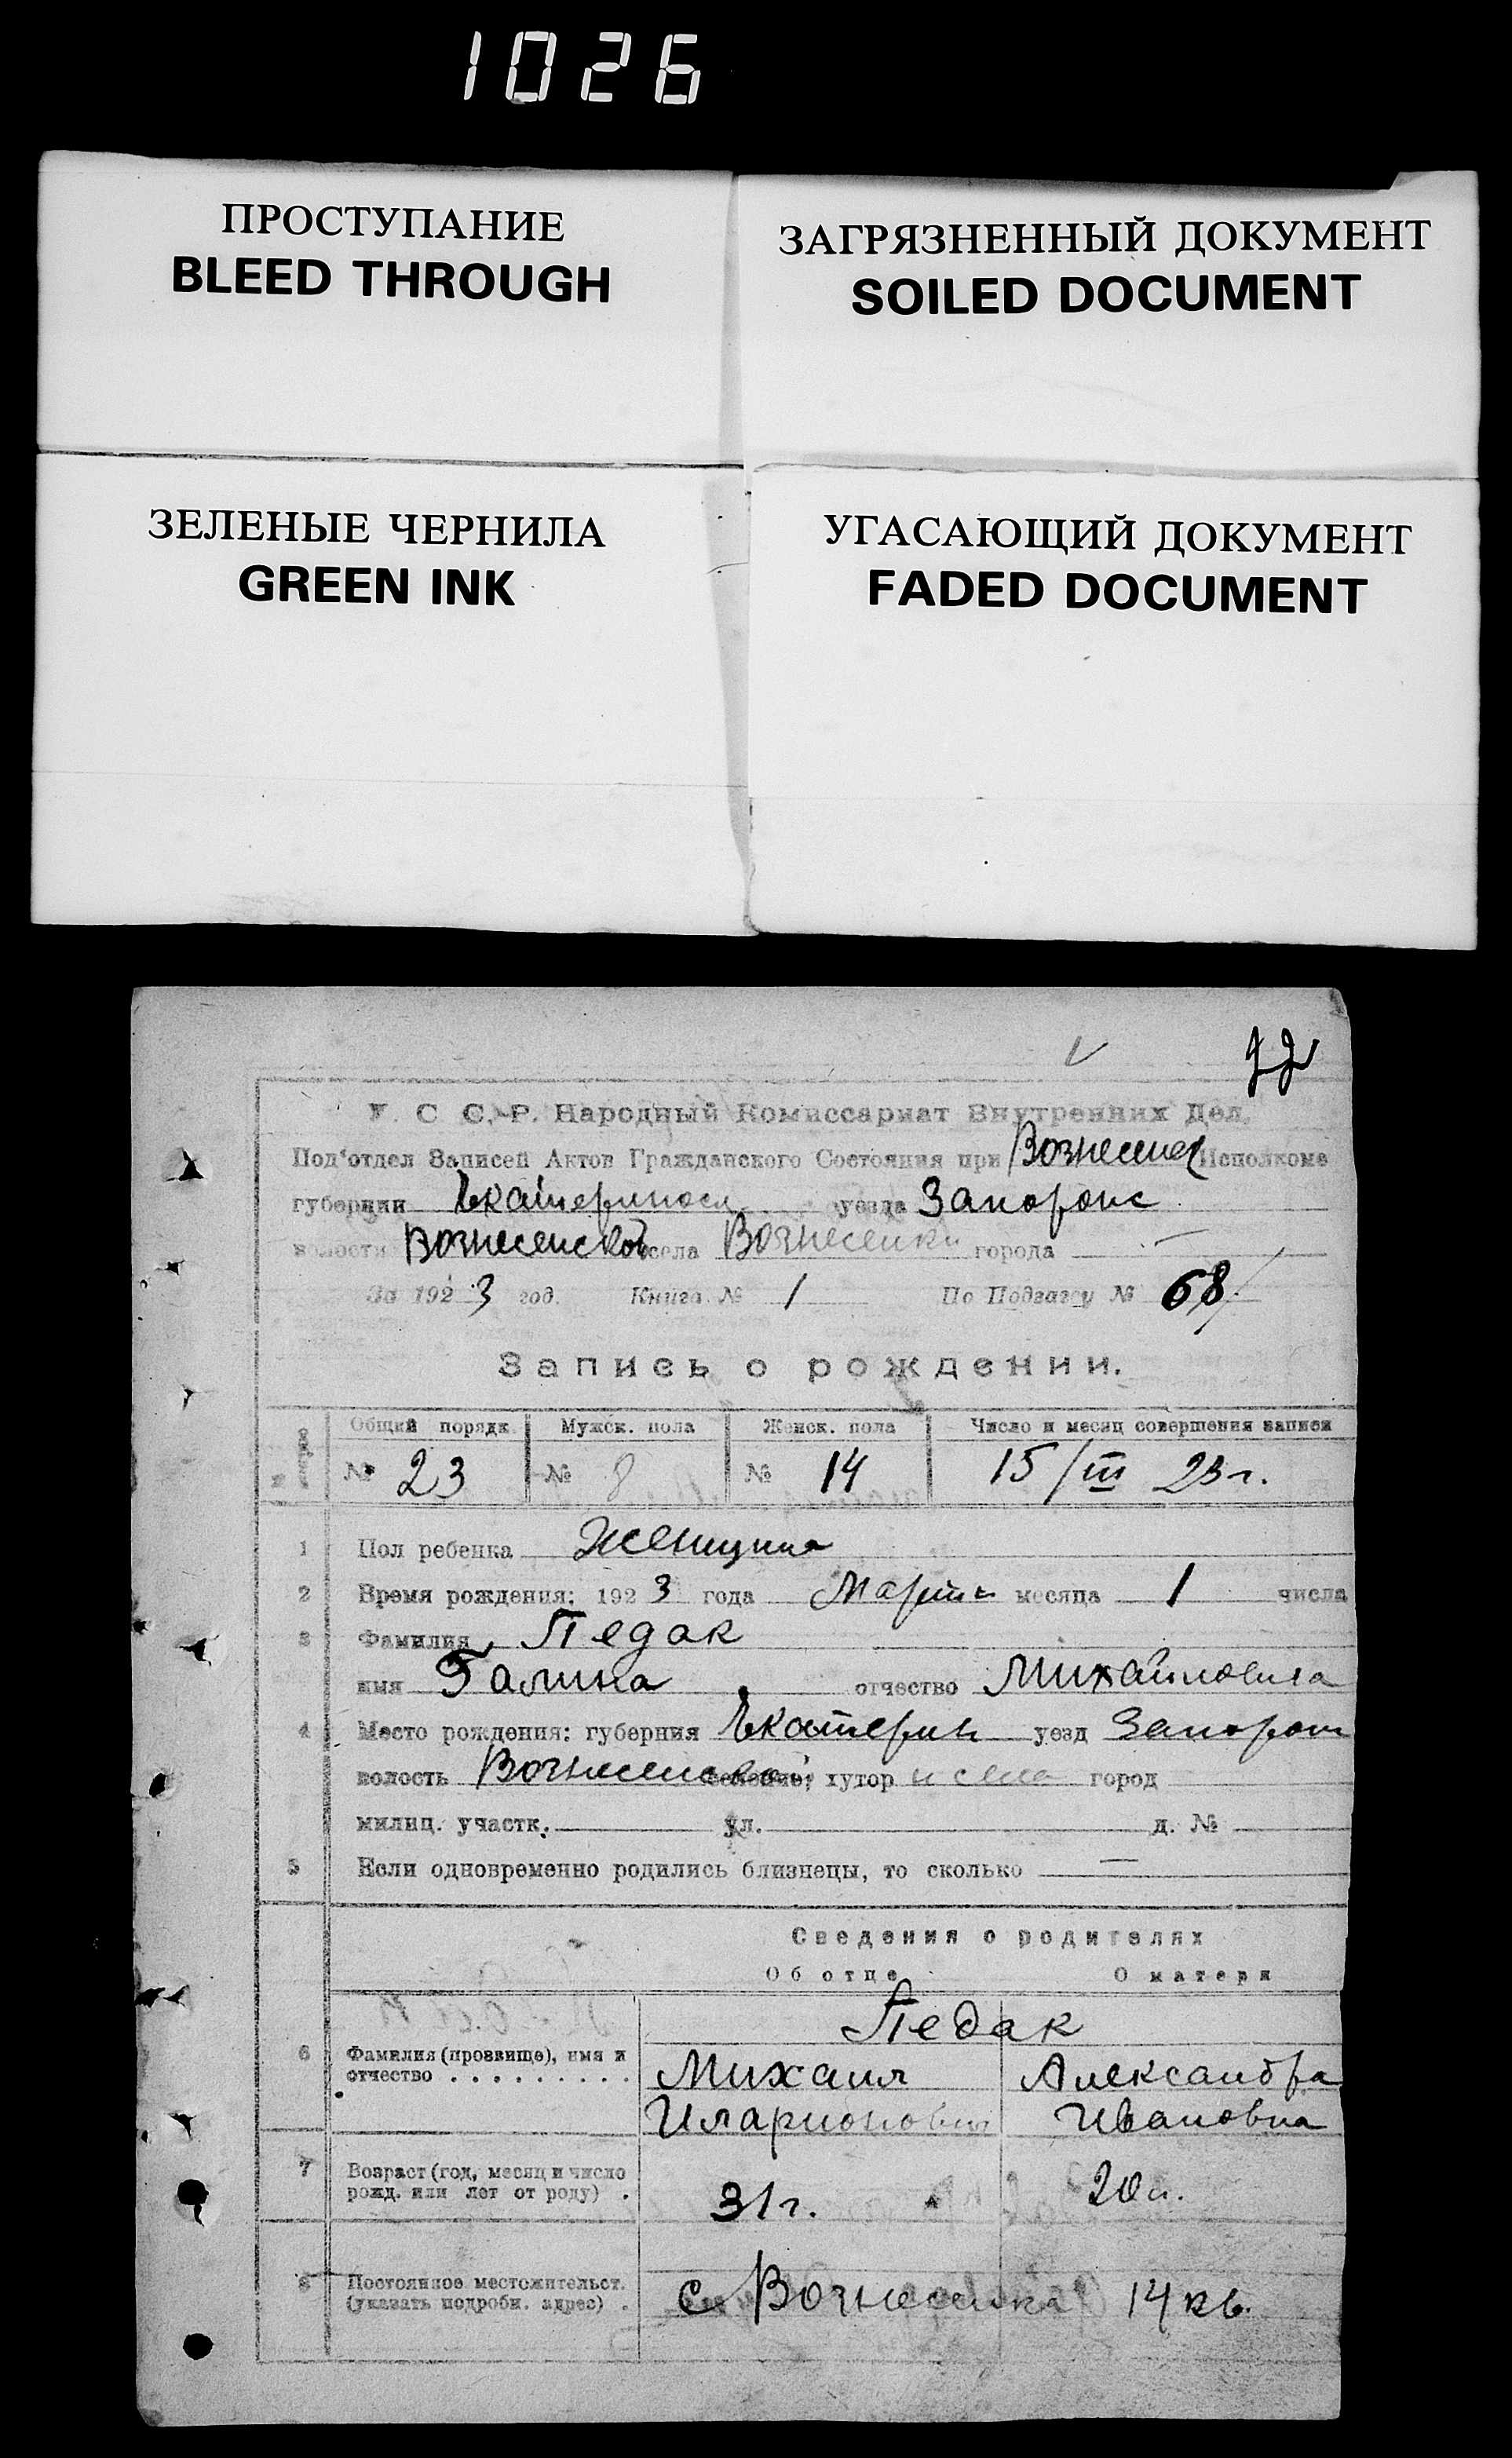 1026
ПРОСТУПАНИЕ
BLEED THROUGH
ЗАГРЯЗНЕННЫЙ ДОКУМЕНТ
SOILED DOCUMENT
ЗЕЛЕНЫЕ ЧЕРНИЛА
GREEN INK
УГАСАЮЩИЙ ДОКУМЕНТ
FADED DOCUMENT
У. С С. Р. Народный Комиссариат Внутренних Дел.
Под'отдел Записей Актов Гражданского Состояния при Вознесенск Исполкоме
губернии Екатериносл уезда Запорож
волости Вознесенской села Вознесенки города —
За 1923 год. Книга № 1 По Подзагсу № 68
Запись о рождении.
Общий порядк. Мужск. пола Женск. пола Число и месяц совершения записи
№ 23 № 8 № 14 15/III 23 г.
1 Пол ребенка Женщина
2 Время рождения: 1923 года Марта месяца 1 числа
3 Фамилия Педак
имя Галина отчество Михайловна
4 Место рождения: губерния Екатерин уезд Запорож
волость Вознесенской хутор и села город
милиц. участк. ул. д. №
5 Если одновременно родились близнецы, то сколько —
Сведения о родителях
Об отце О матери
Педак
6 Фамилия (прозвище), имя и отчество . . . . . . . . .
Михаил Александра
Иларионович Ивановна
7 Возраст (год, месяц и число рожд. или лет от роду) .
31 г. 20 л.
8 Постоянное местожительст. (указать подробн. адрес) .
с. Вознесенка 14 кв.